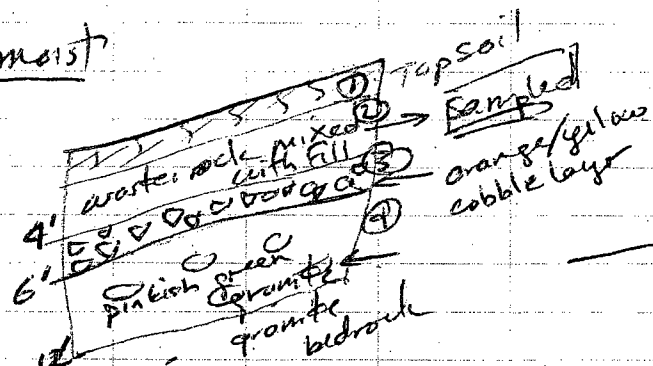 moist
① Topsoil
② → Sampled
waste rock mixed
with fill
③ ← orange/yellow
cobble layer
4'
④
6'
pinkish green
granite
granite
bedrock
12'